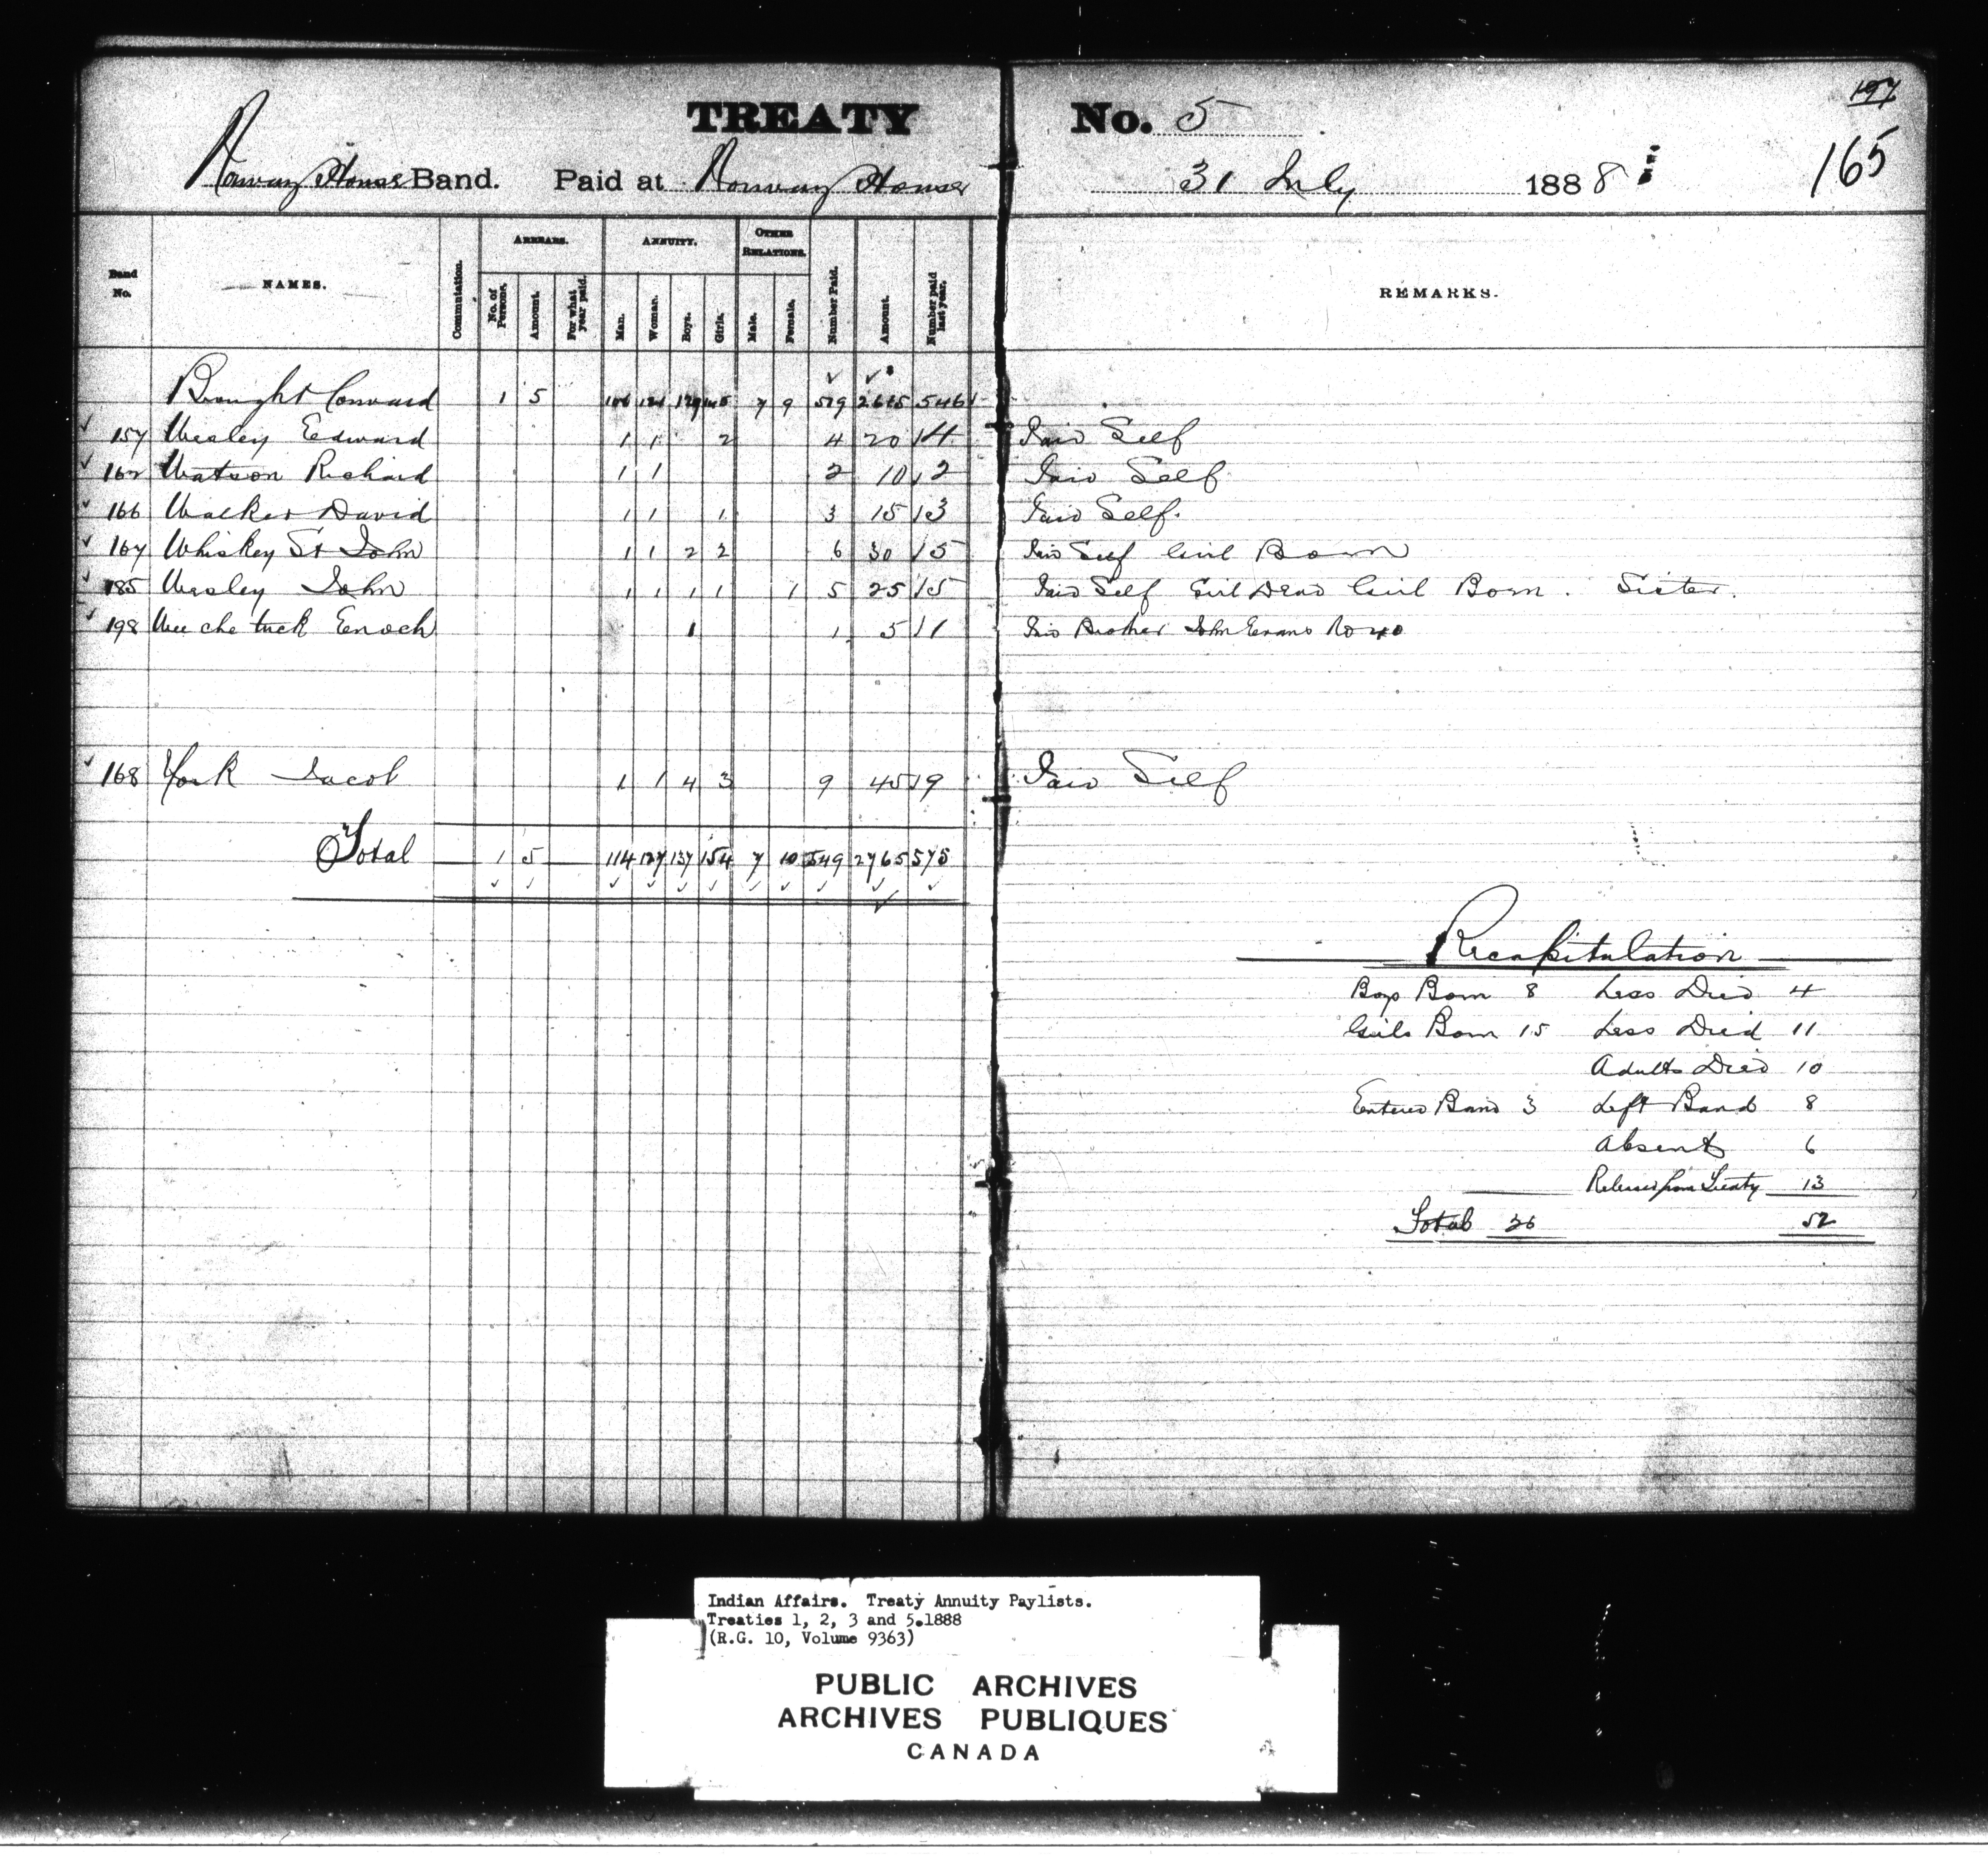 197
TREATY No. 5
165
Norway House Band. Paid at Norway House 31 July 1888
Band No. NAMES. Commutation. ARREARS. No. of Persons. Amount. For what year paid. ANNUITY. Man. Woman. Boys. Girls. OTHER RELATIONS. Male. Female. Number Paid. Amount. Number paid last year. REMARKS.
Brought Forward 1 5 7 9 519 2615 546
157 Wesley Edward 1 1 2 4 20 4 Paid Self
162 Watson Richard 1 1 2 10 2 Paid Self
166 Walker David 1 1 1 3 15 3 Paid Self.
167 Whiskey St John 1 1 2 2 6 30 5 Paid Self Girl Born
185 Wesley John 1 1 1 1 1 5 25 5 Paid Self Girl Dead Girl Born. Sister.
198 Wee che tuck Enoch 1 1 5 1 Paid Brother John Evans No 40
168 York Jacob 1 1 4 3 9 45 9 Paid Self
Total 1 5 114 127 137 154 7 10 549 2765 575
Recapitulation
Boys Born 8 Less Died 4
Girls Born 15 Less Died 11
Adults Died 10
Entered Band 3 Left Band 8
Absent 6
Released from Treaty 13
Total 26 52
Indian Affairs. Treaty Annuity Paylists.
Treaties 1, 2, 3 and 5.1888
(R.G. 10, Volume 9363)
PUBLIC ARCHIVES
ARCHIVES PUBLIQUES
CANADA